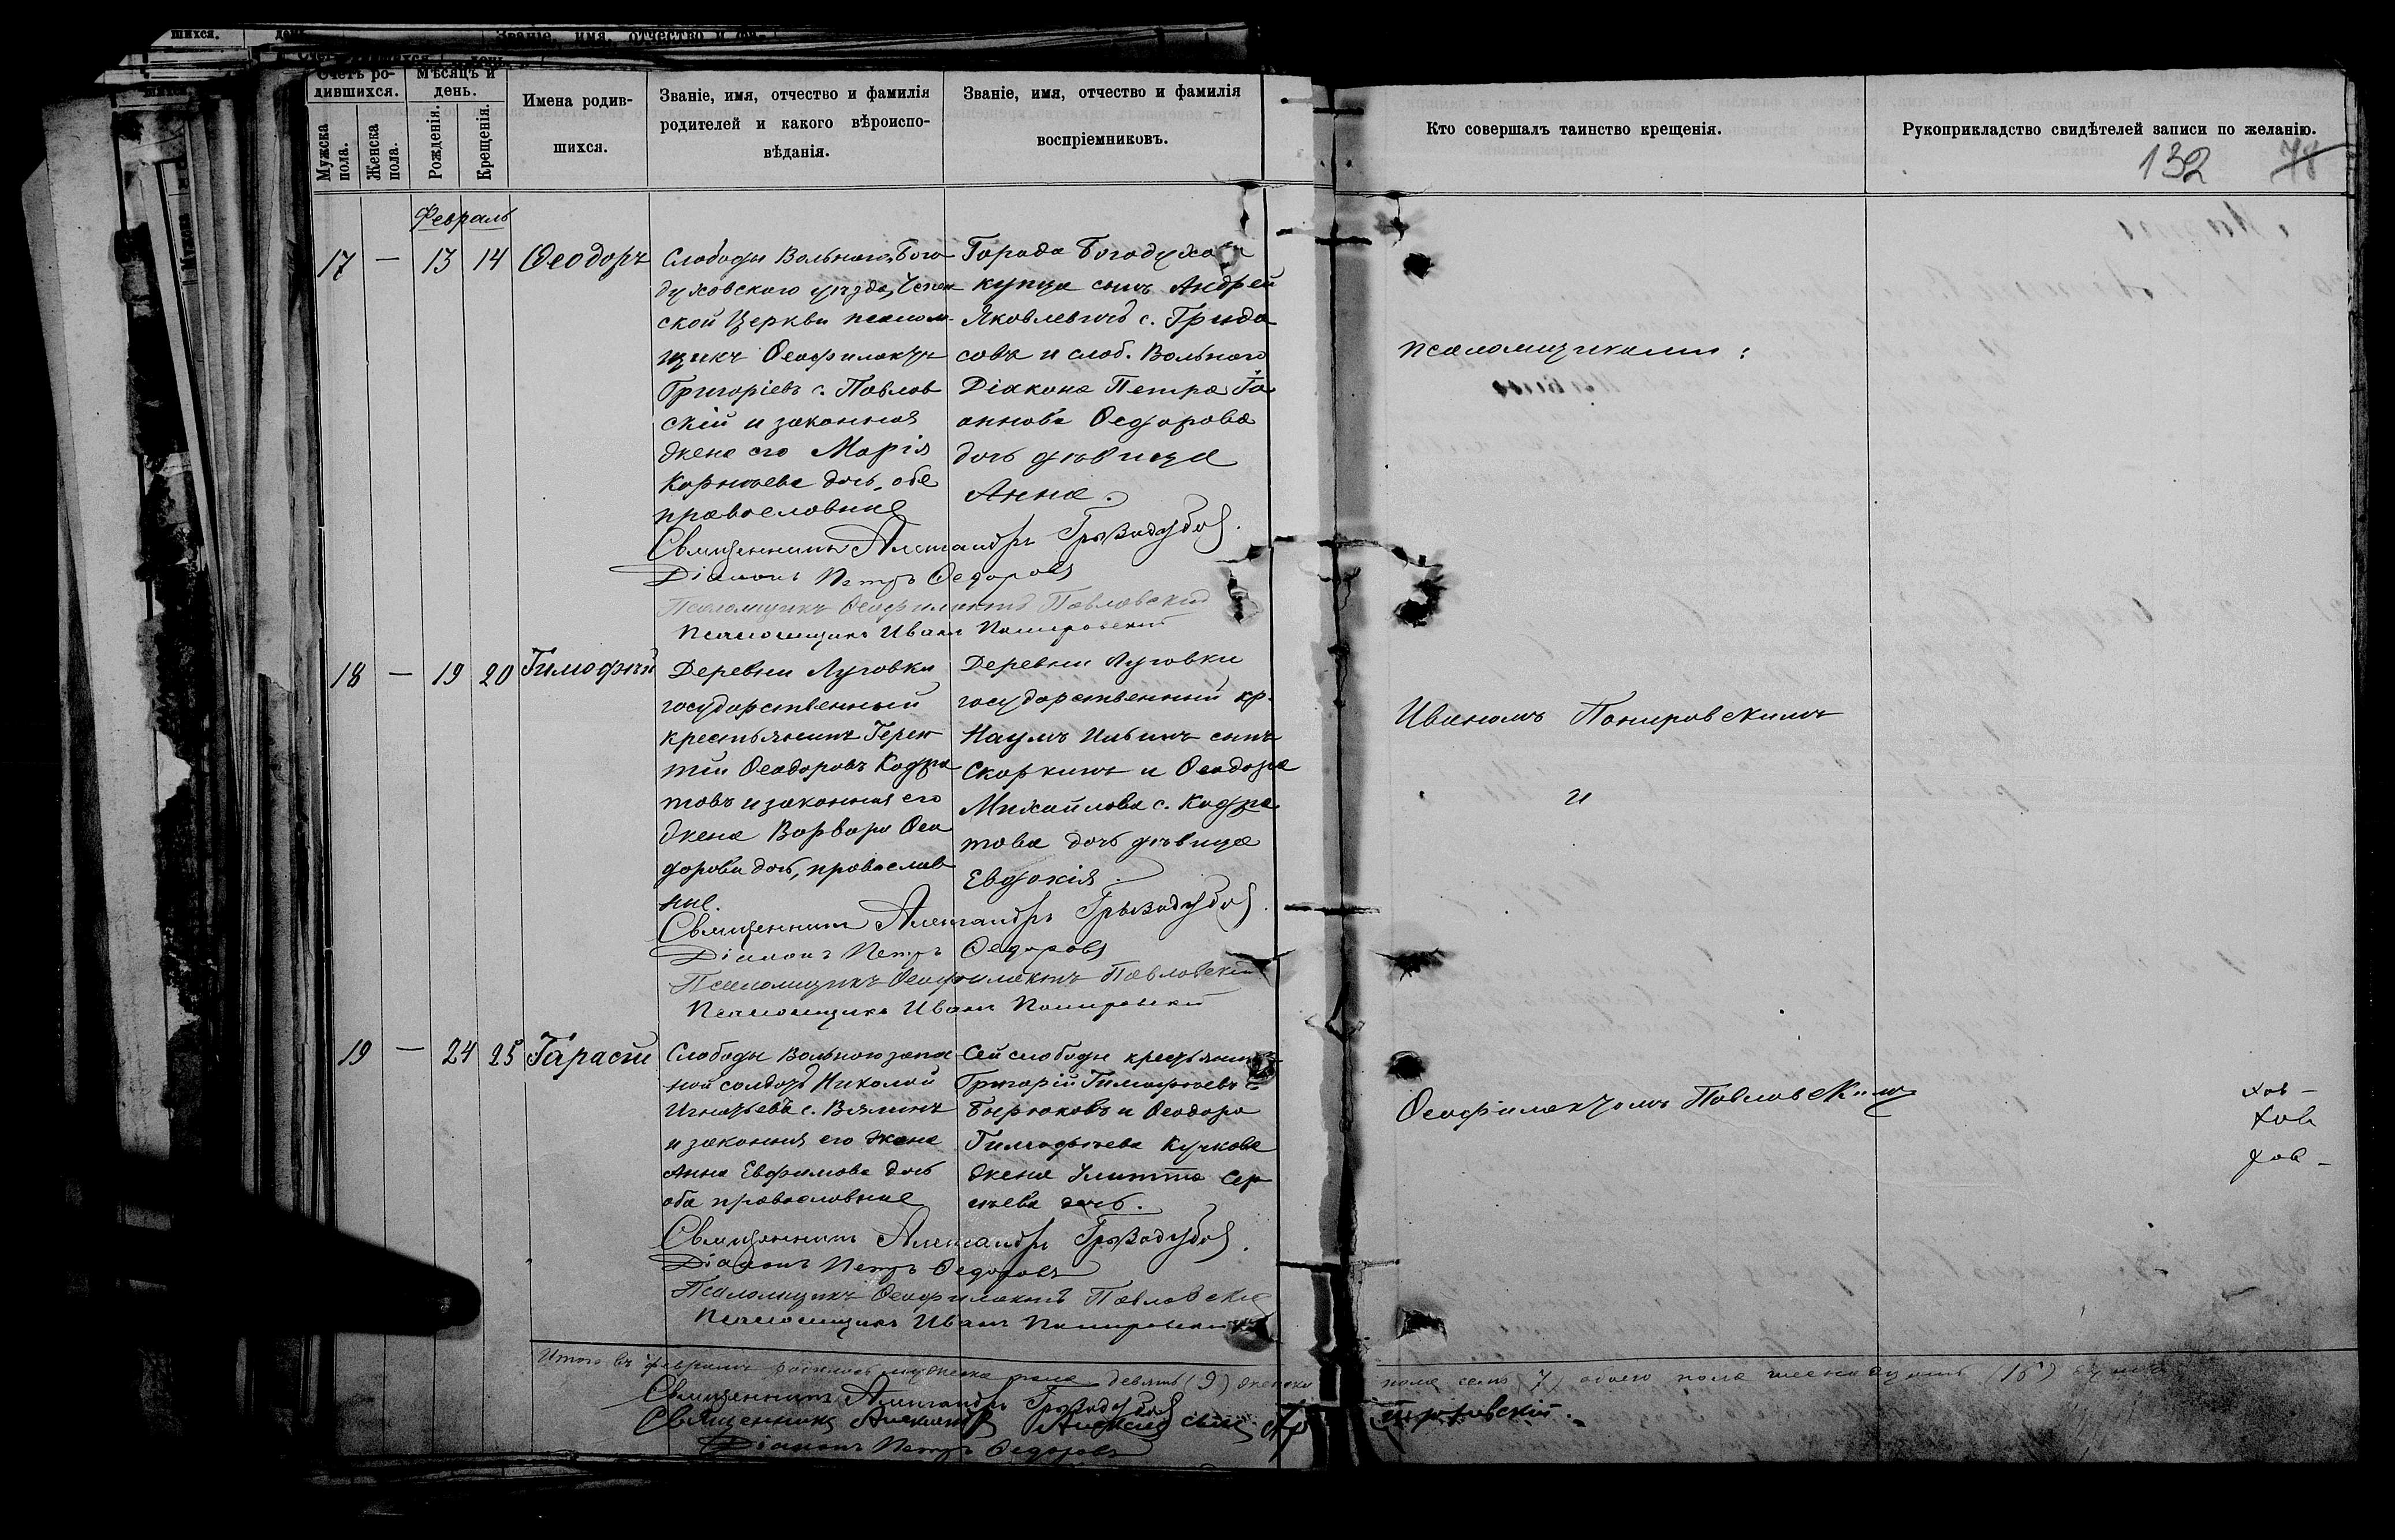 Счетъ ро-
дившихся.
Мѣсяцъ и
день.
Мужска
пола.
Женска
пола.
Рожденія.
Крещенія.
Имена родив-
шихся.
Званіе, имя, отчество и фамилія
родителей и какого вѣроиспо-
вѣданія.
Званіе, имя, отчество и фамилія
воспріемниковъ.
Кто совершалъ таинство крещенія.
Рукоприкладство свидѣтелей записи по желанію.
132 78
Февраль
17 — 13 14 Ѳеодоръ
Слободы Вольного, Бого
духовского уѣзда, Успен
ской Церкви псалом-
щикъ Ѳеофилактъ
Григоріевъ с. Павлов
скій и законная
жена его Марія
Корнѣева дочь, обе
православные
Города Богодухова
купца сынъ Андрей
Яковлевичъ с. Грида
совъ и слоб. Вольного
Діакона Петра Іо
аннова Ѳедорова
дочь дѣвица
Анна.
Священникъ Александръ Грызодубовъ.
Діаконъ Петръ Ѳедоровъ
Псаломщикъ Ѳеофилактъ Павловскій
Псаломщикъ Иванъ
18 — 19 20 Тимофѣй
Деревни Луговки
государственный
крестьянинъ Терен
тій Ѳеодоровъ Кодра
товъ и законная его
жена Варвара Ѳео
дорова дочь, православ
ные.
Деревни Луговки
государственный кр.
Наумъ Ильинъ сынъ
Скоркинъ и Ѳеодора
Михайлова с. Кодра
това дочь дѣвица
Евдокія.
Священникъ Александръ Грызодубовъ.
Діаконъ Петръ Ѳедоровъ
Псаломщикъ Ѳеофилактъ Павловскій
Псаломщикъ Иванъ
19 — 24 25 Тарасій
Слободы Вольного запас
ной солдатъ Николай
Игнатьевъ с. Вялинъ
и законная его жена
Анна Евфимова дочь
оба православные
Сей слободы крестьянинъ
Григорій Тимофѣевъ
Бирюковъ и Ѳеодора
Тимофѣева Кучкова
жена Улитта Сер
гѣева дочь.
Священникъ Александръ Грызодубовъ.
Діаконъ Петръ Ѳедоровъ
Псаломщикъ Ѳеофилактъ Павловскій
Псаломщикъ Иванъ
Итого въ февралѣ родилось мужска пола девять (9) женска
Священникъ Александръ Грызодубовъ
Священникъ
Діаконъ Петръ Ѳедоровъ
псаломщиками:
Иваномъ
и
Ѳеофилактомъ Павловскимъ
хов-
хов
хов-
пола семь (7) обоего пола шестнадцать (16)